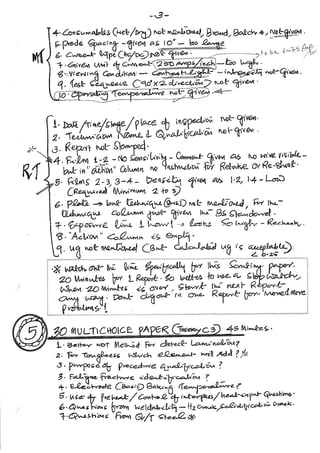 -3-
MT
4. Consumables (wet/Dry) not mentioned, Brand, Batch #, Not given.
5. Prode Spacing - given as 10" - too large
6. Current type (AC/DC) Not given.
7. Given Unit of current (200 Amps/inch) - too high.
8. Viewing Condition - - intensity not given.
9. Test Sequence (90°x2 direction) not given.
10. Operating Temperature not given
RT
1. Date/Time/Stage/place of inspection not given.
2. Technician Name & Qualification not given.
3. Report Not Stamped.
4. Film 1-2 - No Sensitivity - Comment given as no wire visible - but in "action" column no instruction for Retake or Re-shoot.
5. Films 2-3, 3-4 - Density given as 1.2, 1.4 - Low
(Required Minimum 2 to 3)
6. Plate → but Technique not mentioned, For the technique column just given the BS Standard.
7. Exposure time 1 hour! → looks So high - Recheck.
8. "Action" Column is empty.
9. Ug not mentioned (But Calculated Ug is acceptable)
6.25
* watch out the time specifically for this paper.
20 Minutes for 1 Report. So better to use a Stop watch,
when 20 minutes is over, start the next Report
any way. Don't in One Report for
Problems!
5
30 MULTICHOICE PAPER (Theory C3) 45 Minutes.
1. Better NDT Method for detect Lamination?
2. For Toughness which element will Add?
3. purpose of procedure qualification?
3. Fatigue fracture identification?
4. Electrode (Basic) Baking Temperature?
5. Use of Preheat/Control of interpass/heat-input Questions.
6. Questions from weldability - H2 Crack, Solidification Crack.
7. Questions from Steel *